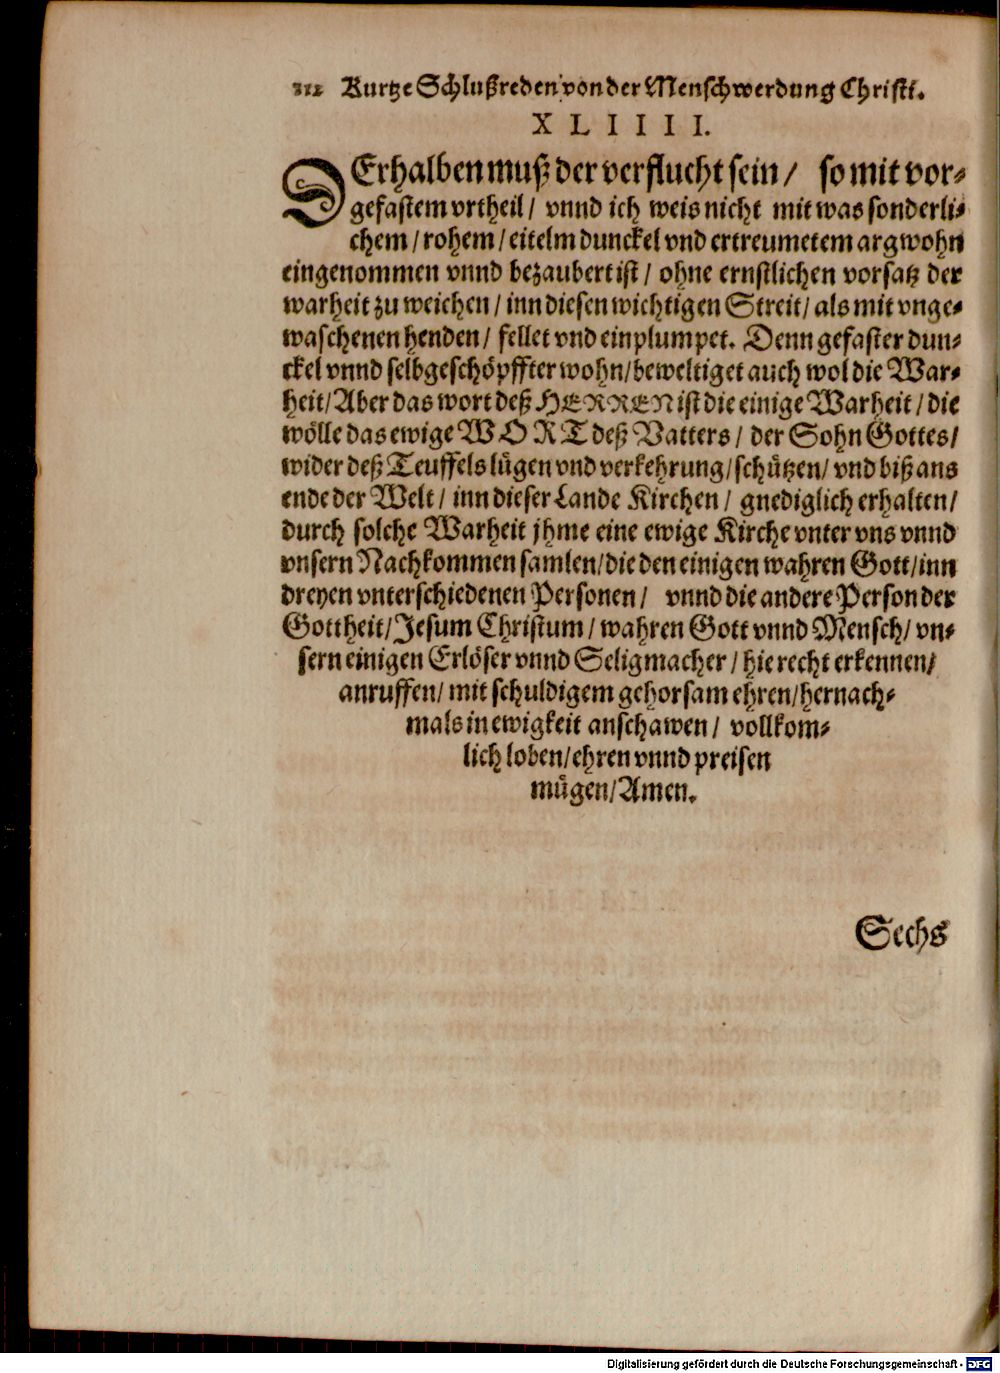 112 Kurtze Schlußreden von der Menschwerdung Christi.
X L I I I I.
DErhalben muß der verflucht sein / so mit vor-
gefastem vrtheil / vnnd ich weis nicht mit was sonderli-
chem / rohem / eitelm dunckel vnd ertreumetem argwohn
eingenommen vnnd bezaubert ist / ohne ernstlichen vorsatz der
warheit zu weichen / inn diesen wichtigen Streit / als mit vnge-
waschenen henden / fellet vnd einplumpet. Denn gefaster dun-
ckel vnnd selbgeschöpffter wohn / beweltiget auch wol die War-
heit / Aber das wort deß HERREN ist die einige Warheit / die
wölle das ewige WORT deß Vatters / der Sohn Gottes /
wider deß Teuffels lügen vnd verkehrung / schützen / vnd biß ans
ende der Welt / inn dieser Lande Kirchen / gnediglich erhalten /
durch solche Warheit jhme eine ewige Kirche vnter vns vnnd
vnsern Nachkommen samlen / die den einigen wahren Gott / inn
dreyen vnterschiedenen Personen / vnnd die andere Person der
Gottheit / Jesum Christum / wahren Gott vnnd Mensch / vn-
sern einigen Erlöser vnnd Seligmacher / hie recht erkennen /
anruffen / mit schuldigem gehorsam ehren / hernach-
mals in ewigkeit anschawen / vollkom-
lich loben / ehren vnnd preisen
mügen / Amen.
Sechs
Digitalisierung gefördert durch die Deutsche Forschungsgemeinschaft - DFG